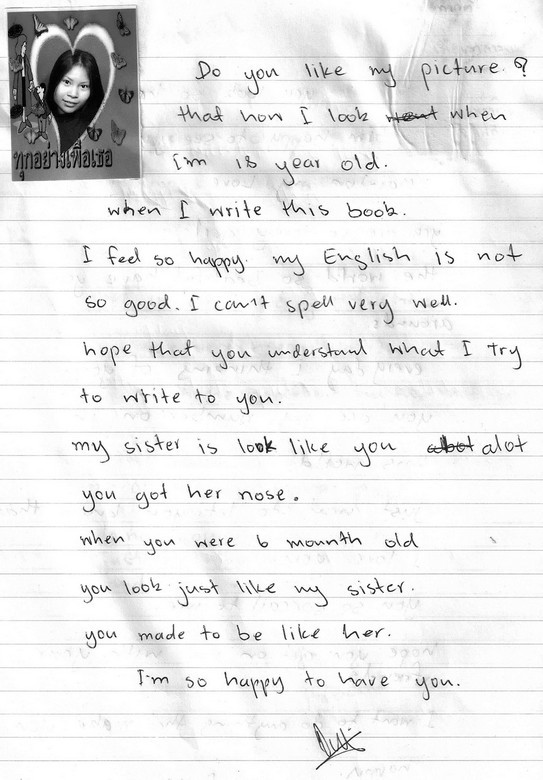 ทุกอย่างเพื่อเธอ
Do you like my picture. ?
that how I look when
I'm 18 year old.
when I write this book.
I feel so happy. my English is not
so good. I can't spell very well.
hope that you understand what I try
to write to you.
my sister is look like you alot
you got her nose.
when you were 6 mounth old
you look just like my sister.
you made to be like her.
I'm so happy to have you.